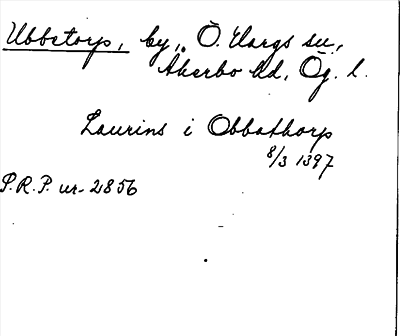 Ubbetorp, by, Ö. Hargs sn,
Åkerbo hd, Ög. l.
Laurins i Obbathorp
8/3 1397
P.R.P. nr 2856